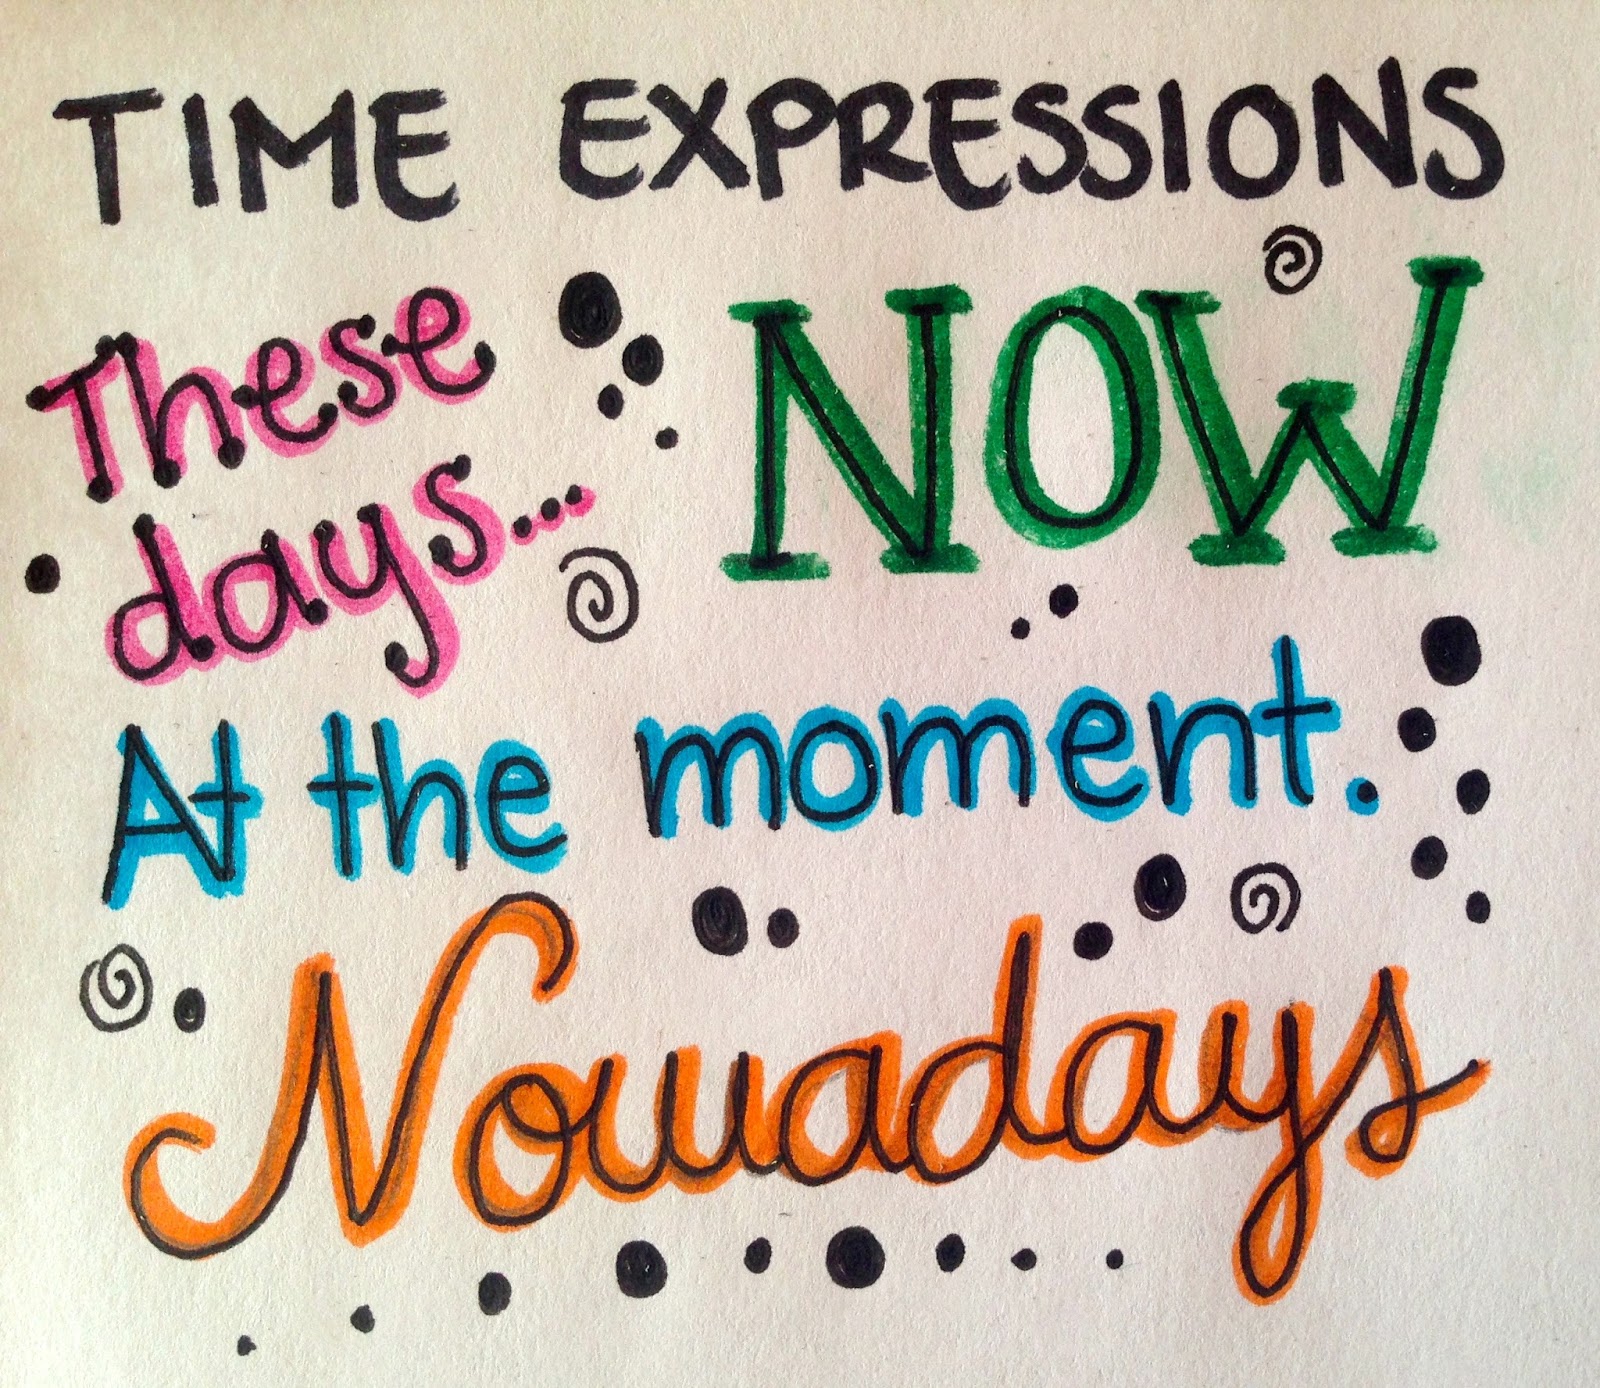 TIME EXPRESSIONS
These
days...
NOW
At the moment.
Nowadays